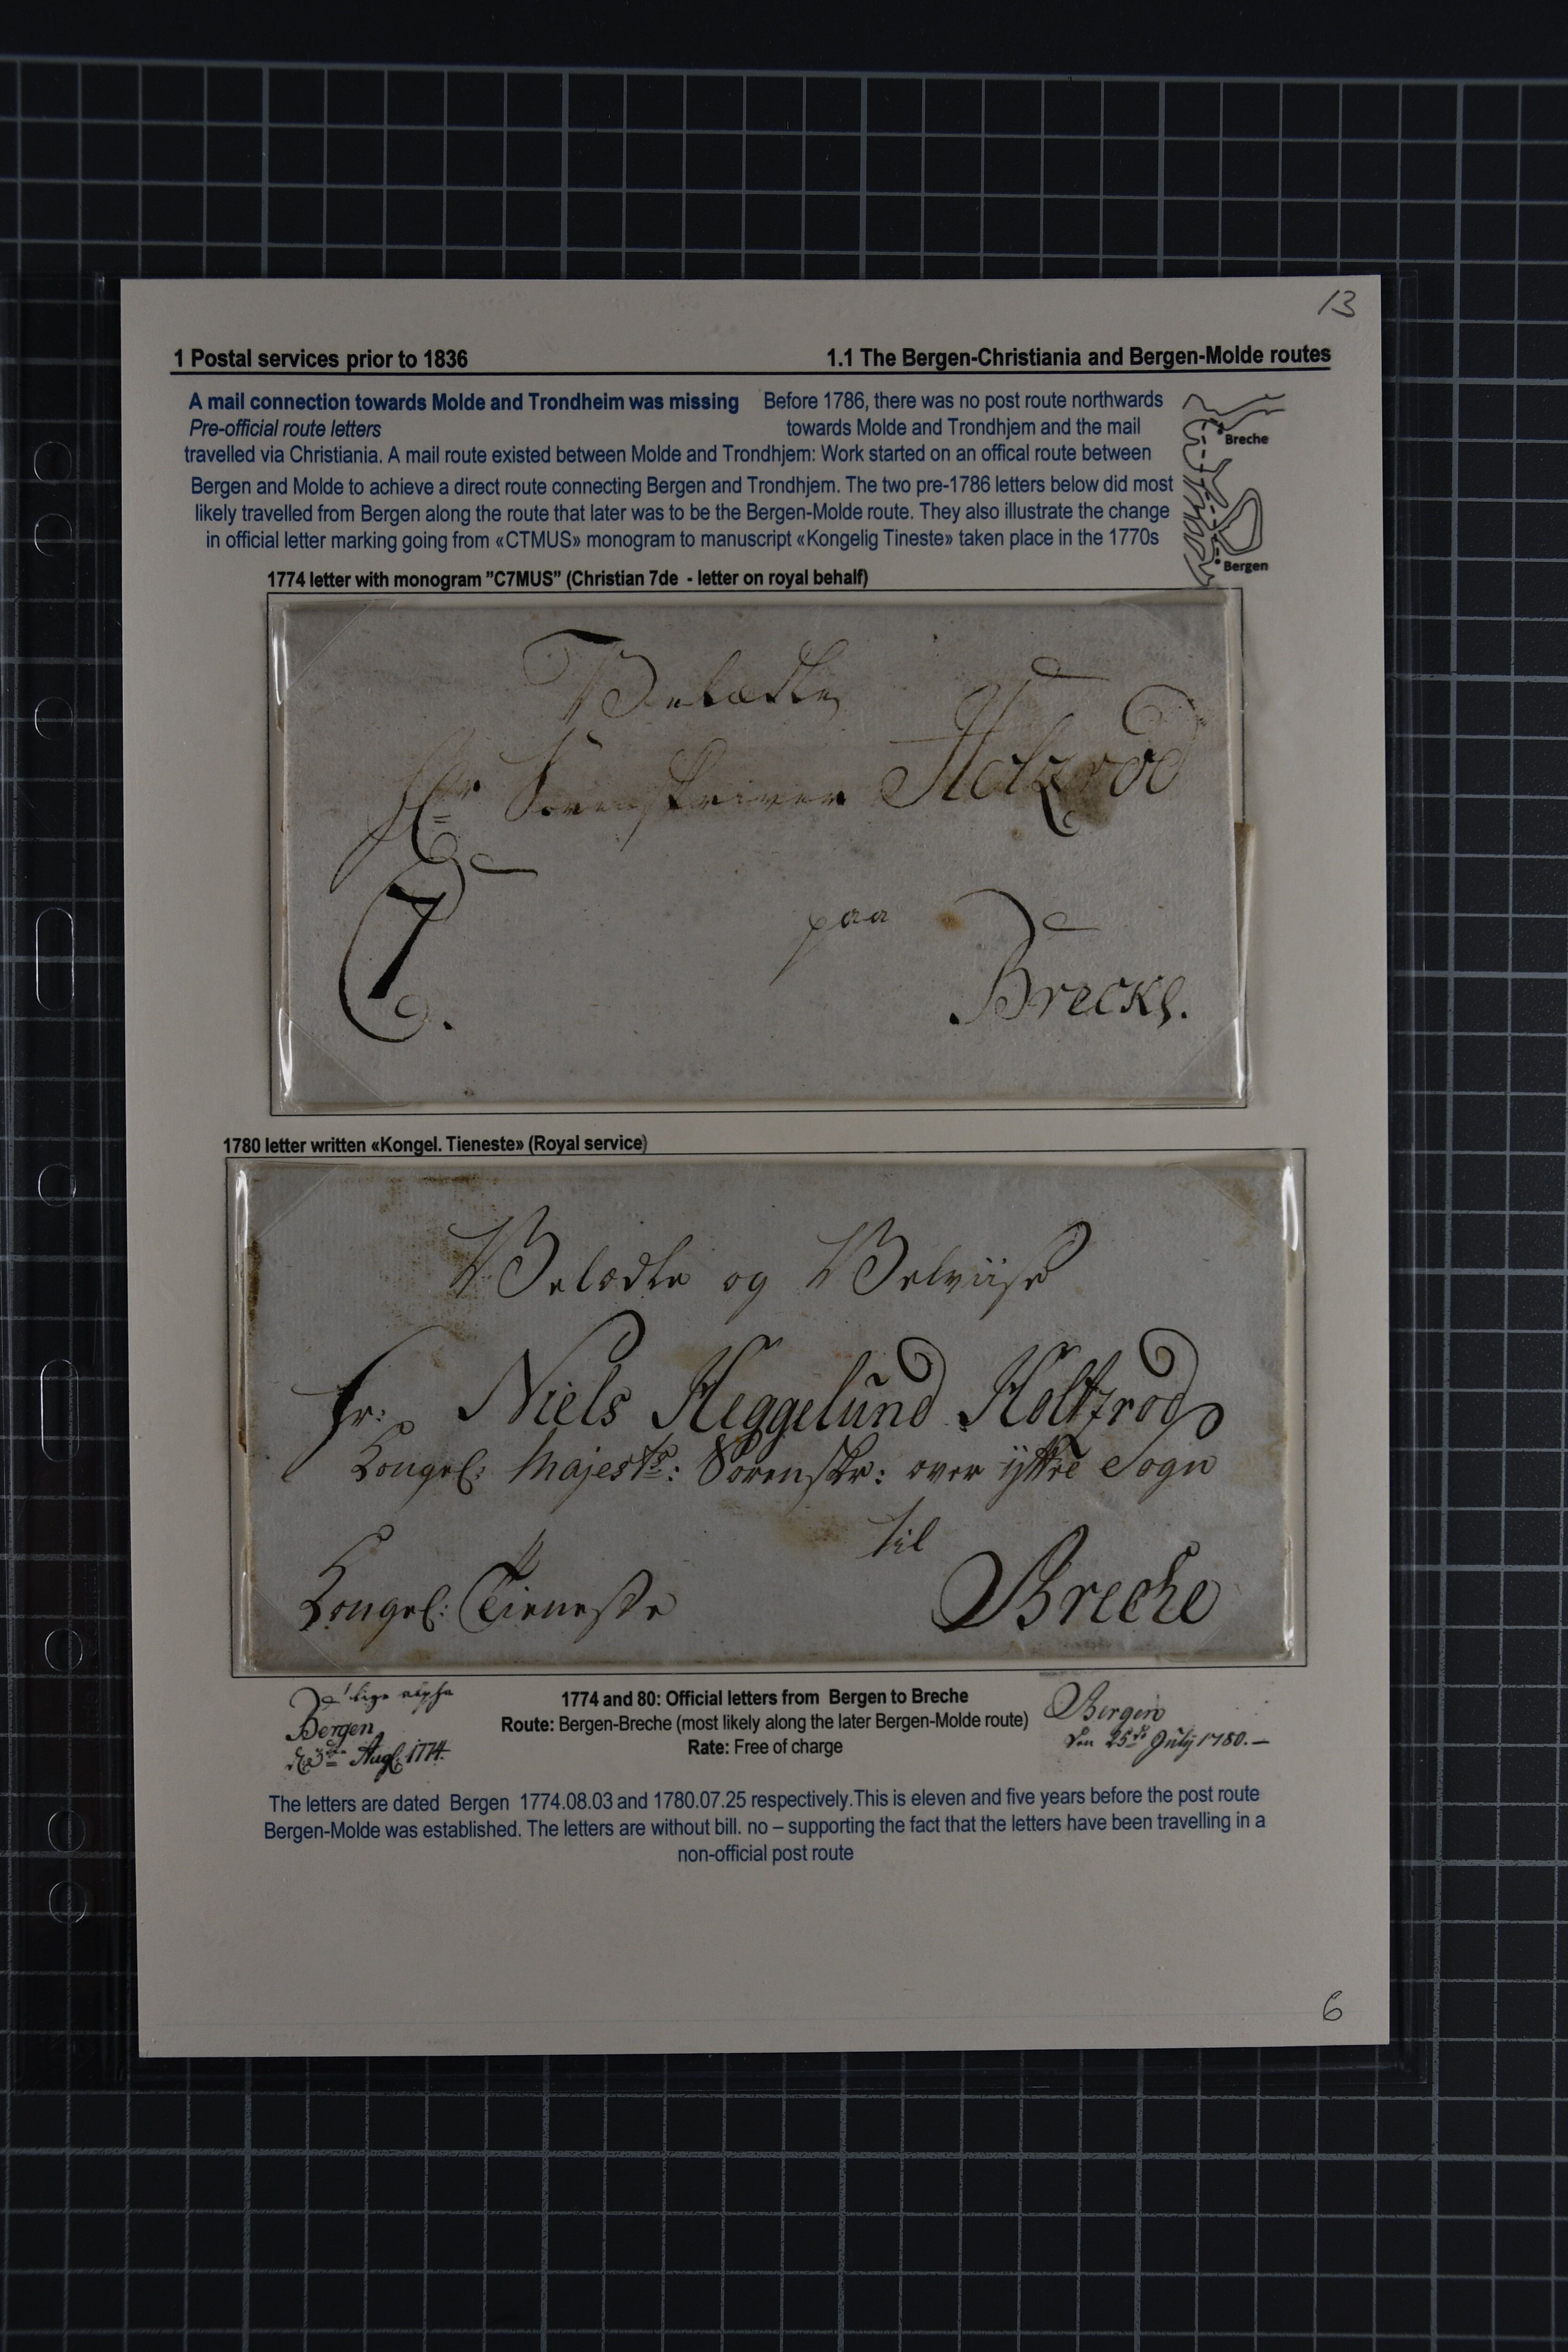 13
1 Postal services prior to 1836
1.1 The Bergen-Christiania and Bergen-Molde routes
A mail connection towards Molde and Trondheim was missing Before 1786, there was no post route northwards
Pre-official route letters towards Molde and Trondhjem and the mail
travelled via Christiania. A mail route existed between Molde and Trondhjem: Work started on an offical route between
Bergen and Molde to achieve a direct route connecting Bergen and Trondhjem. The two pre-1786 letters below did most
likely travelled from Bergen along the route that later was to be the Bergen-Molde route. They also illustrate the change
in official letter marking going from «CTMUS» monogram to manuscript «Kongelig Tineste» taken place in the 1770s
Breche
Bergen
1774 letter with monogram ”C7MUS” (Christian 7de - letter on royal behalf)
Velædle
Hr Sorenskriver Holzrod
C7
paa
Breche.
1780 letter written «Kongel. Tieneste» (Royal service)
Velædle og Velviise
Hr: Niels Heggelund Holtzrod
Kongel: Majests: Sorenskr: over ÿttre Sogn
til
Kongel: Tieneste
Breche
Bergen
d 3de Augl: 1774.
1774 and 80: Official letters from Bergen to Breche
Route: Bergen-Breche (most likely along the later Bergen-Molde route)
Rate: Free of charge
Bergen
den 25de Julÿ 1780.—
The letters are dated Bergen 1774.08.03 and 1780.07.25 respectively.This is eleven and five years before the post route
Bergen-Molde was established. The letters are without bill. no – supporting the fact that the letters have been travelling in a
non-official post route
6